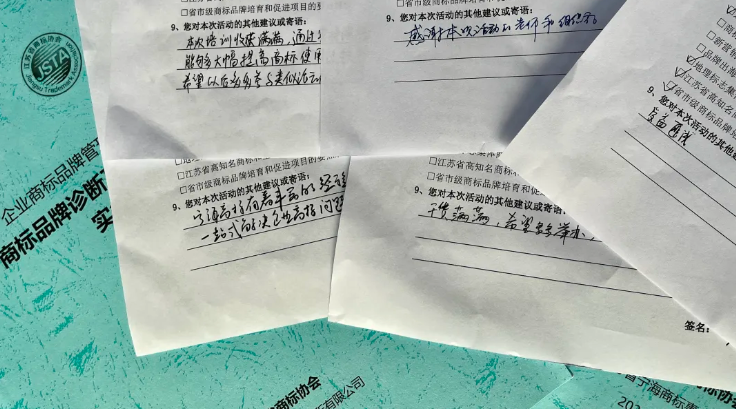 江苏省商标协会
JSTA
企业商标品牌管
商标品牌诊断
实
□省市级商标品牌培育和促进项目的
9、您对本次活动的其他建议或寄语:
本次培训收获满满,通过
能够大幅提高商标使用
希望以后多多参与类似活动
9、您对本次活动的其他建议或寄语:
感谢本次活动的老师和组织者
□品牌出海
☑地理标志集
☑江苏省高知名商
☑省市级商标品牌
9、您对本次活动的其他
受益匪浅
签名:
□江苏省高知名商标
□省市级商标品牌培育和促进项目的
9、您对本次活动的其他建议或寄语:
一站式解决企业商标问题
□江苏省高知名商标
□省市级商标品牌培育和促
9、您对本次活动的其他建议或寄语:
干货满满,希望多多举办
商标协会
有限公司
宁海商标事
202